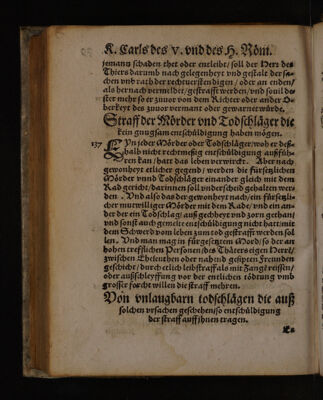 K. Carls des V. vnd des H. Röm.
jemant schaden thet oder entleibt/ soll der Herr des
Thiers darumb nach gelegenheyt vnd gestalt der sa-
chen vnd rath der rechtuerstendigen/ oder an enden/
als hernach vermeldet/ gestrafft werden/ vnd souil de-
ster mehr so er zuuor von dem Richter oder ander O-
berkeyt des zuuor vermant oder gewarnet würde.
Straff der Mörder vnd Todschläger die
kein gnugsam entschüldigung haben mögen.
137 EYn jeder Mörder oder Todschläger/ wo er deß-
halb nicht rechtmeßig entschüldigung außfüh-
ren kan/ hatt das leben verwirckt. Aber nach
gewonheyt etlicher gegend/ werden die fürsetzlichen
Mörder vnnd Todschläger einander gleich mit dem
Rad gericht/ darinnen soll vnderscheid gehalten wer-
den. Vnd also das der gewonheyt nach/ ein fürsetzli-
cher mutwilliger Mörder mit dem Rade/ vnd ein an-
der der ein Todschlag/ auß gecheyt vnd zorn gethan/
vnd sonst auch gemelte entschüldigung nicht hatt/ mit
dem Schwerd vom leben zum tod gestrafft werden sol
len. Vnd man mag im fürgesetztem Mord/ so der an
hohen trefflichen Personen/ des Thäters eigen Herrn/
zwischen Eheleuthen oder nahend gesipten Freunden
geschicht/ durch etlich leibstraff als mit Zangē reissen/
oder außschleyffung vor der entlichen tödtung vmb
grosser forcht willen die straff mehren.
Von vnlaugbarn todschlägen die auß
solchen vrsachen geschehen/ so entschüldigung
der straff auff jhnen tragen.